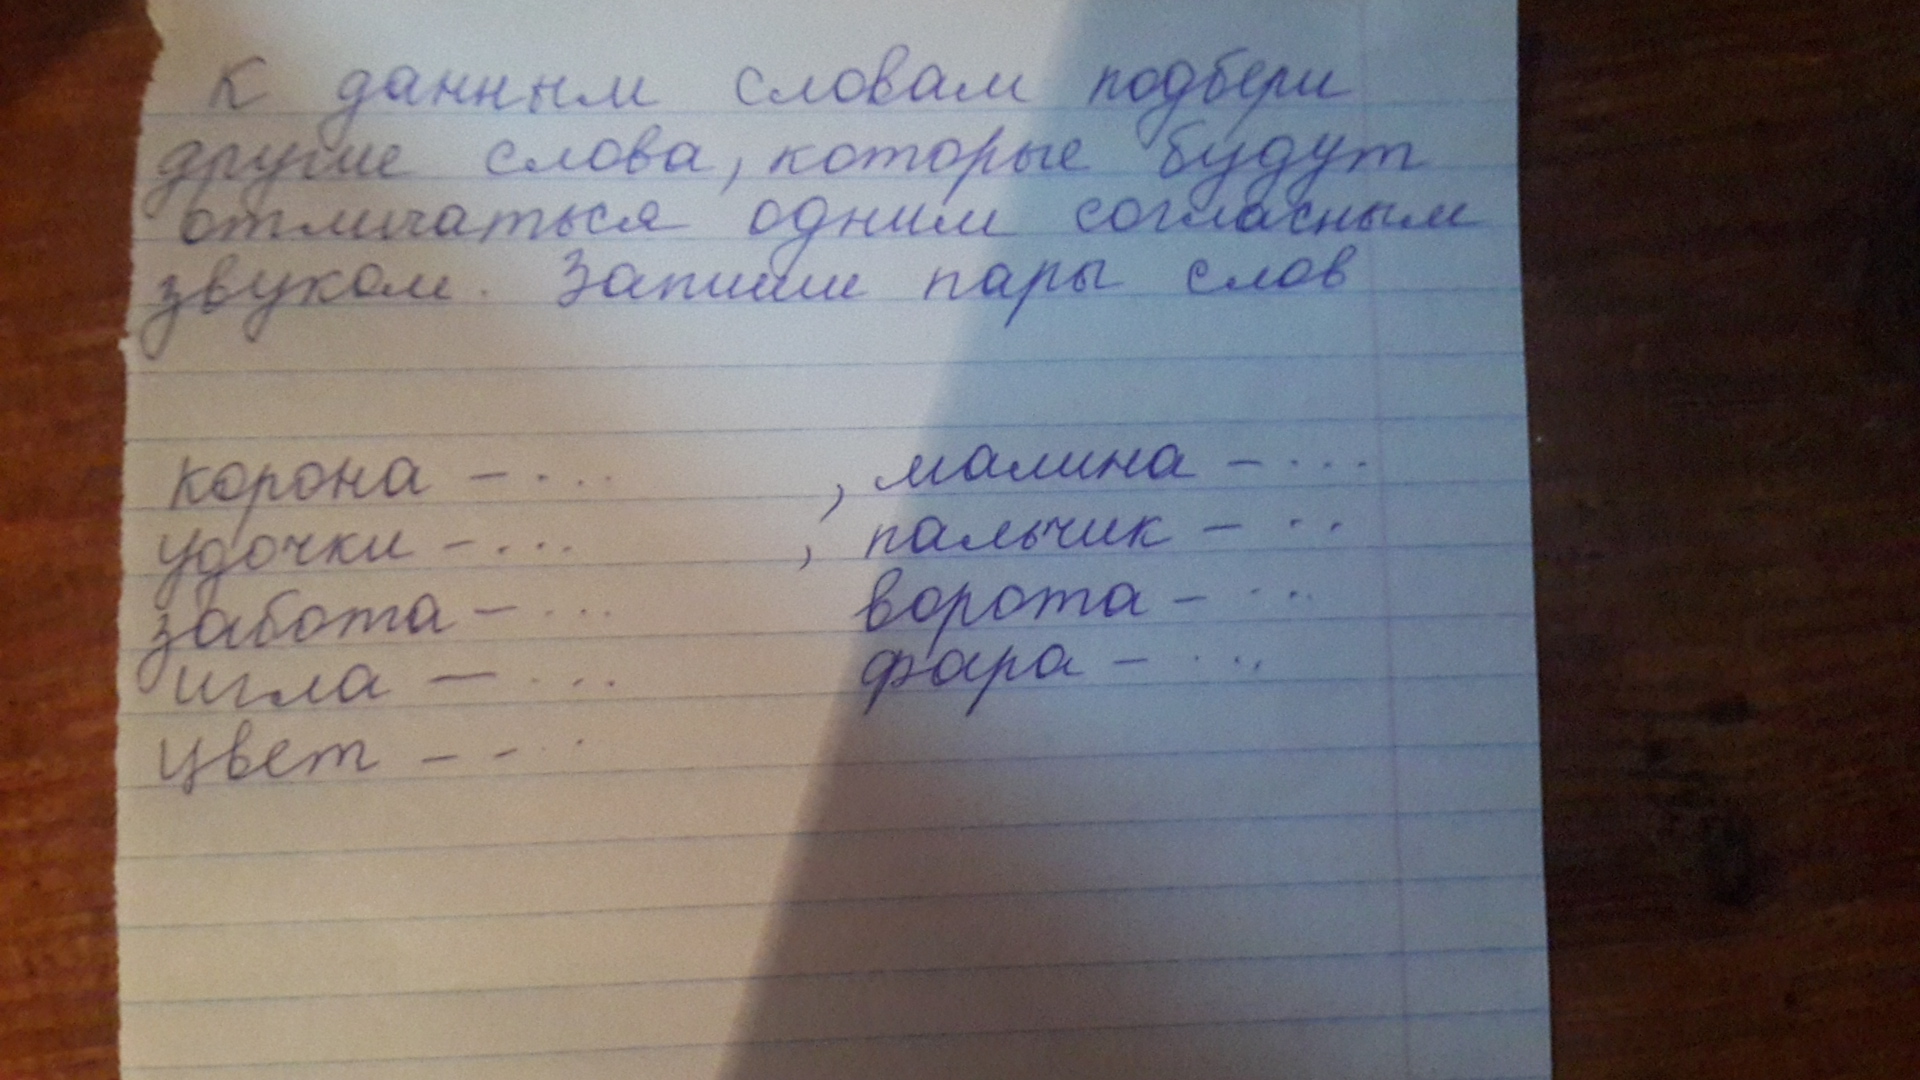 К данным словам подбери
другие слова, которые будут
отличаться одним согласным
звуком. Запиши пары слов
корона – ... , малина – ...
удочки – ... , пальчик – ...
забота – ... ворота – ...
игла – ... фара – ...
цвет – - . .